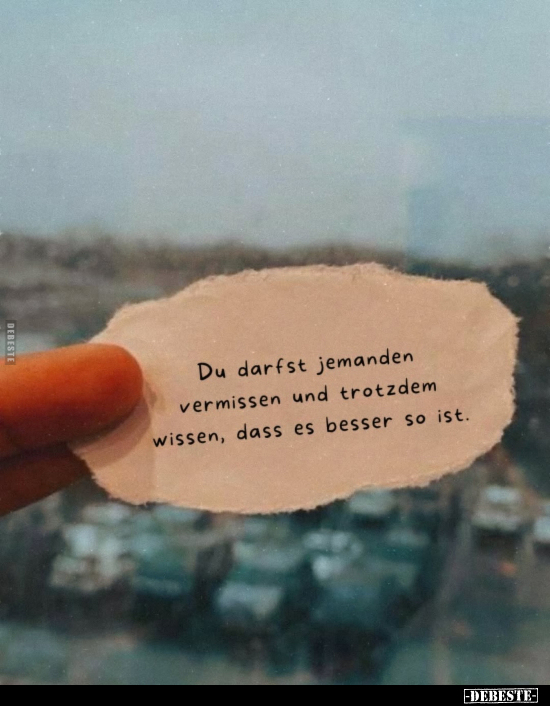 Du darfst jemanden
vermissen und trotzdem
wissen, dass es besser so ist.
DEBESTE
-DEBESTE-